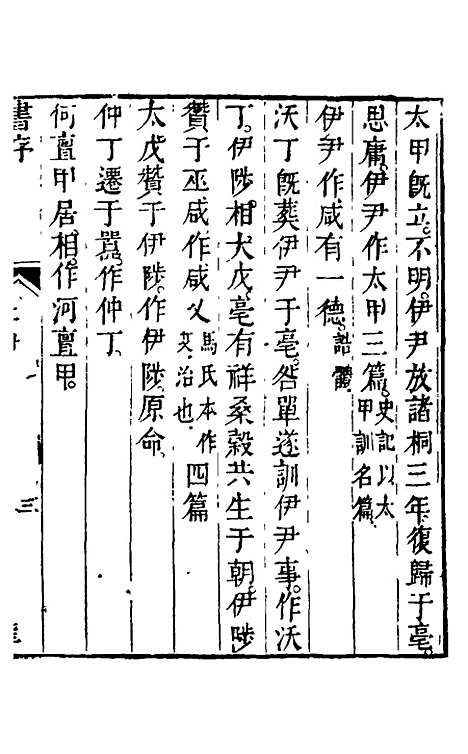 太甲旣立。不明。伊尹放諸桐三年。復歸于亳。
思庸。伊尹作太甲三篇。史記以太甲訓名篇
伊尹作咸有一德。誥體
沃丁旣葬伊尹于亳。咎單遂訓伊尹事。作沃
丁。伊陟相大戊。亳有祥桑穀共生于朝。伊陟
贊于巫咸作咸乂馬氏本作艾。治也四篇
太戊贊于伊陟。作伊陟原命
仲丁遷于囂。作仲丁
何亶甲居相。作河亶甲。
書序
三